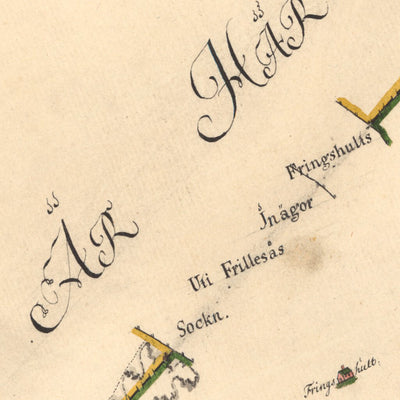 HÄR
ÄR
Fringshults
Jnägor
Uti Frillesås
Sockn.
Fringshult: